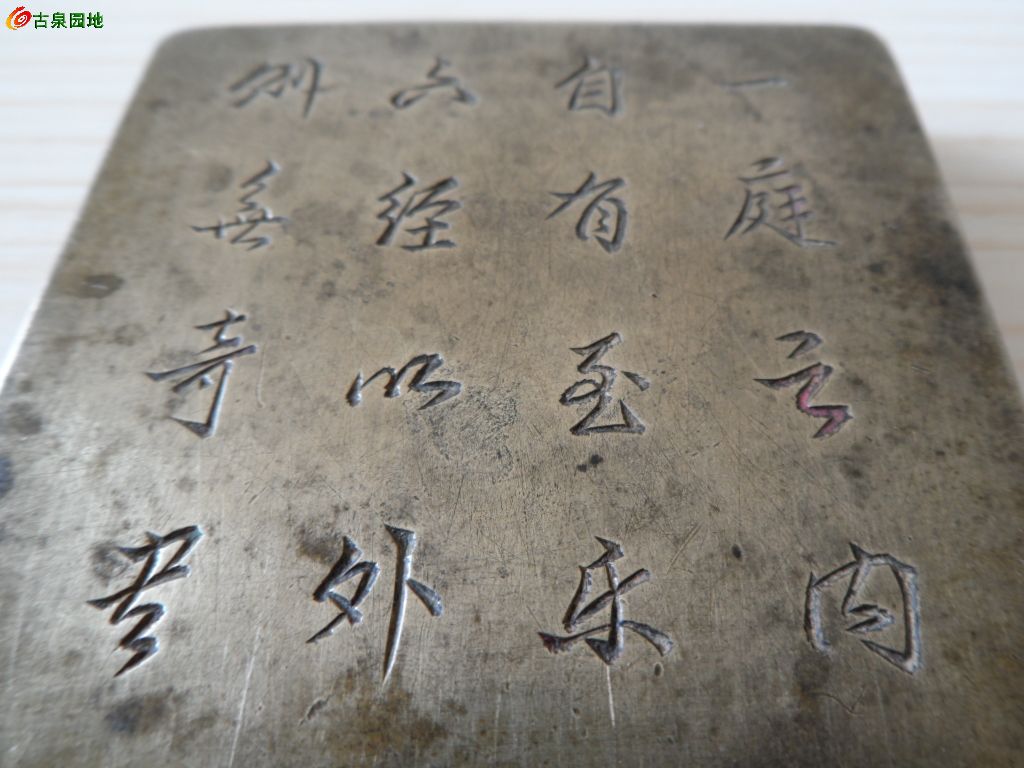 古泉园地
一庭之内
自有至乐
六經以外
别無奇書